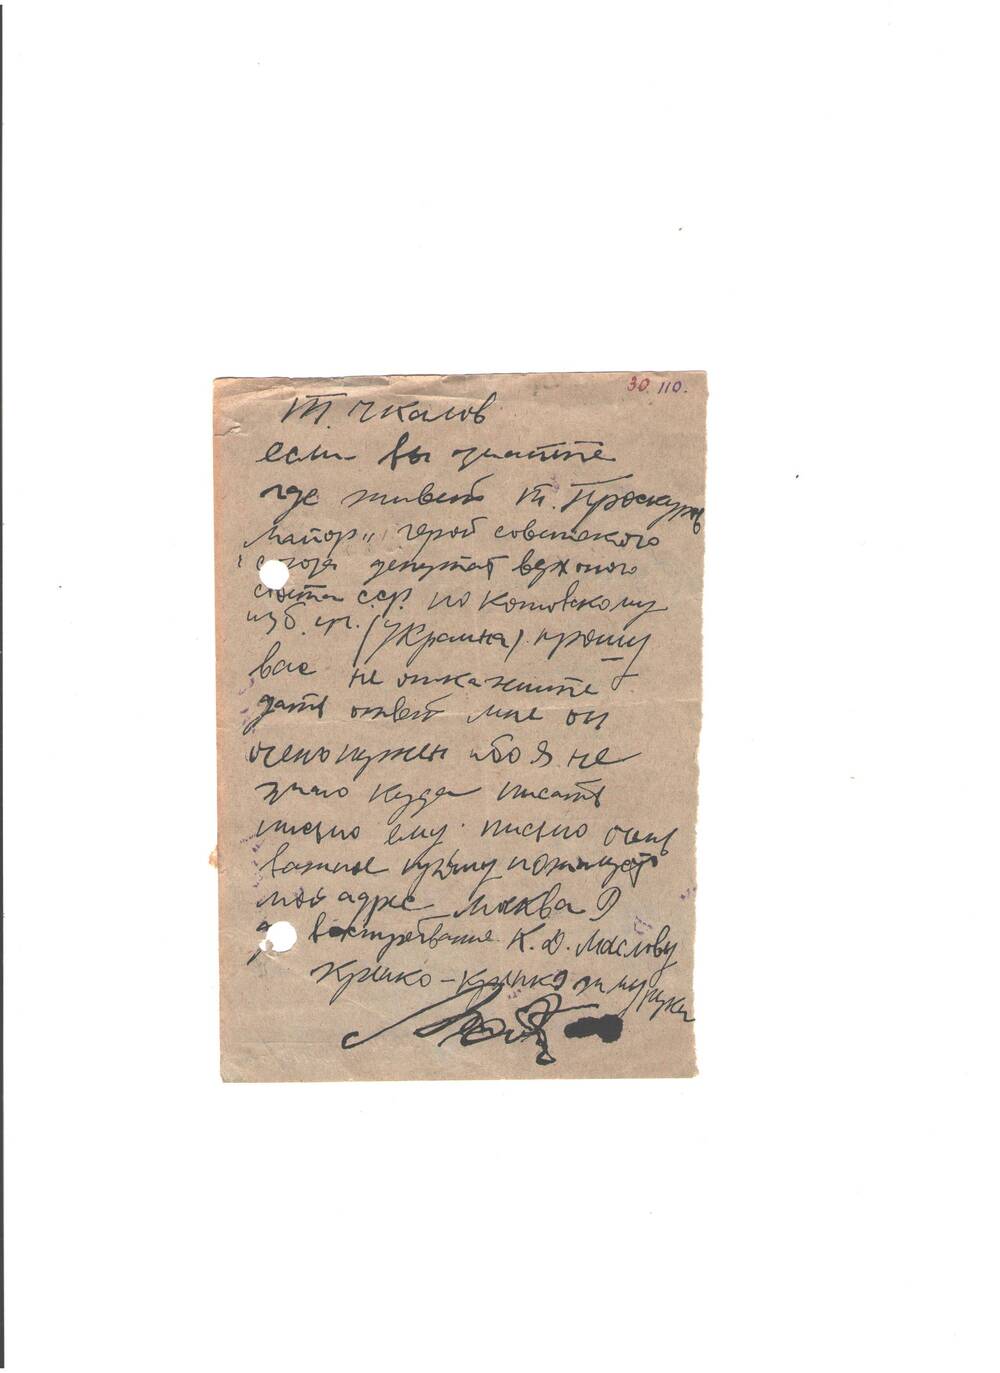 30. 110.
Т. Чкалов
если вы знаите
где живет т. Проскуров
майор" герой советского
союза депутат верхного
совета ссср. по Котовскому
изб. (Украина) прошу
вас не откажите
дать ответ мне он
очень нужен ибо я не
знаю куда писать
письмо ему. письмо очень
важное прошу пожалуйста
мой адрес Москва 9
востребование К. Д. Маслову
Крепко-крепко жму руки